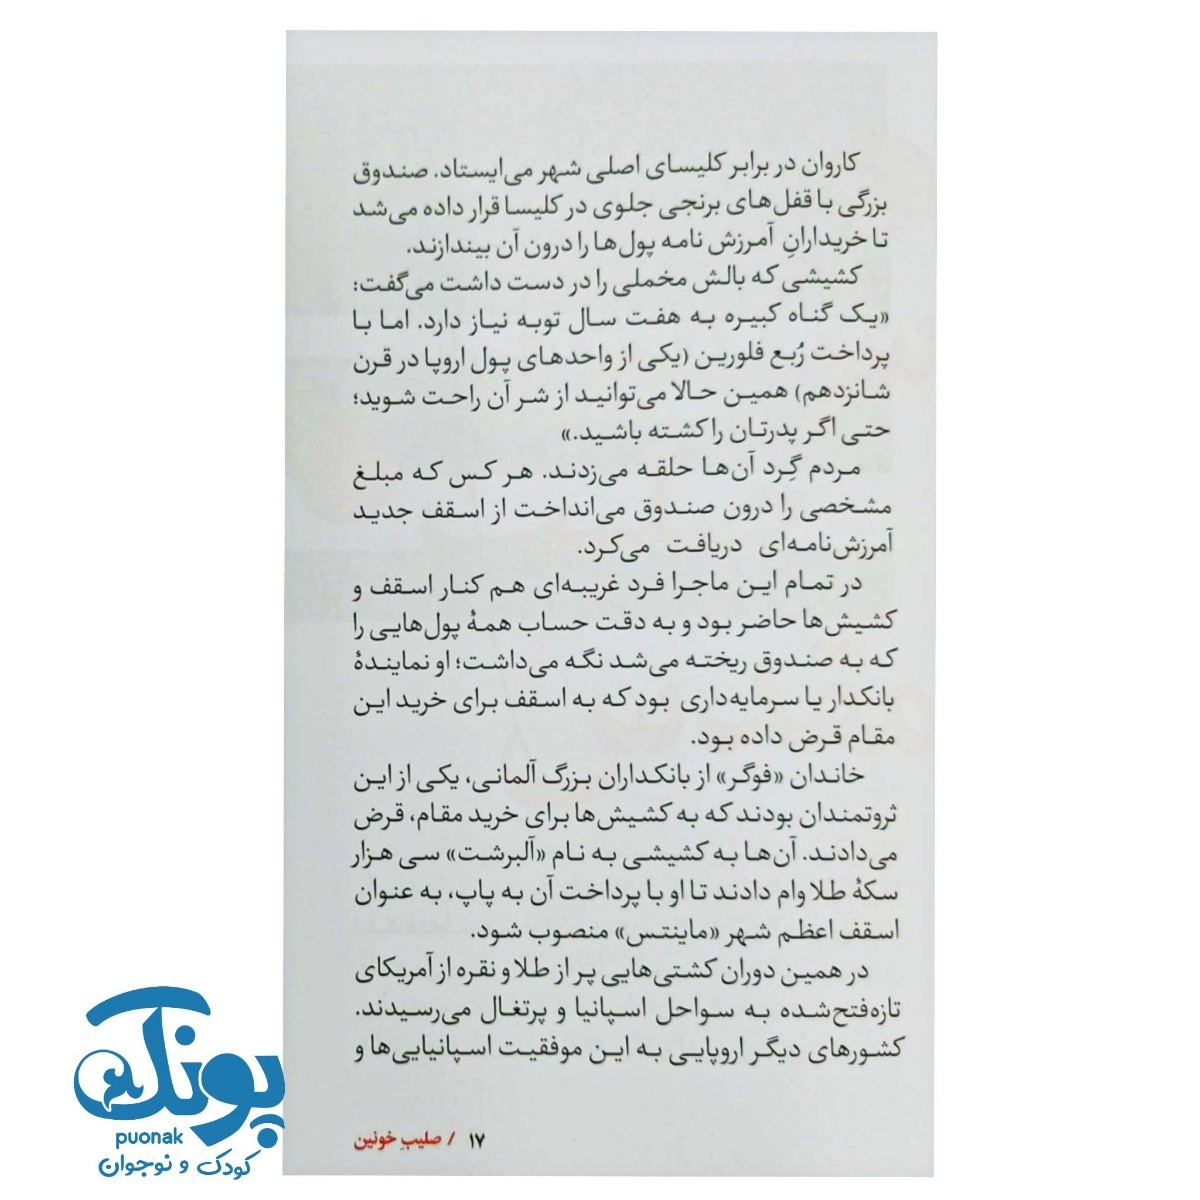 کاروان در برابر کلیسای اصلی شهر می‌ایستاد. صندوق
بزرگی با قفل‌های برنجی جلوی در کلیسا قرار داده می‌شد
تا خریدارانِ آمرزش نامه پول‌ها را درون آن بیندازند.
کشیشی که بالش مخملی را در دست داشت می‌گفت:
«یک گناه کبیره به هفت سال توبه نیاز دارد. اما با
پرداخت رُبع فلورین (یکی از واحدهای پول اروپا در قرن
شانزدهم) همین حالا می‌توانید از شر آن راحت شوید؛
حتی اگر پدرتان را کشته باشید.»
مردم گِرد آن‌ها حلقه می‌زدند. هر کس که مبلغ
مشخصی را درون صندوق می‌انداخت از اسقف جدید
آمرزش‌نامه‌ای دریافت می‌کرد.
در تمام این ماجرا فرد غریبه‌ای هم کنار اسقف و
کشیش‌ها حاضر بود و به دقت حساب همهٔ پول‌هایی را
که به صندوق ریخته می‌شد نگه می‌داشت؛ او نمایندهٔ
بانکدار یا سرمایه‌داری بود که به اسقف برای خرید این
مقام قرض داده بود.
خاندان «فوگر» از بانکداران بزرگ آلمانی، یکی از این
ثروتمندان بودند که به کشیش‌ها برای خرید مقام، قرض
می‌دادند. آن‌ها به کشیشی به نام «آلبرشت» سی هزار
سکهٔ طلا وام دادند تا او با پرداخت آن به پاپ، به عنوان
اسقف اعظم شهر «ماینتس» منصوب شود.
در همین دوران کشتی‌هایی پر از طلا و نقره از آمریکای
تازه‌فتح‌شده به سواحل اسپانیا و پرتغال می‌رسیدند.
کشورهای دیگر اروپایی به این موفقیت اسپانیایی‌ها و
۱۷ / صلیبِ خونین
پونک
puonak
کودک و نوجوان